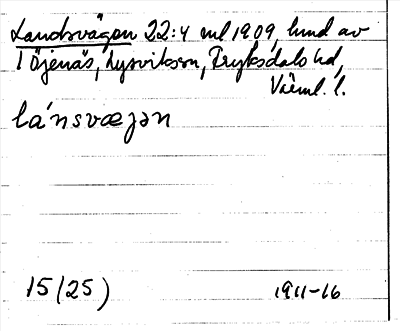 Landsvägen 22:4 enl 1909, hmd av
1 Öjenäs, Lysviks sn, Fryksdals hd,
Värml. l.
lánsvæjən
15 (25)
1911-16